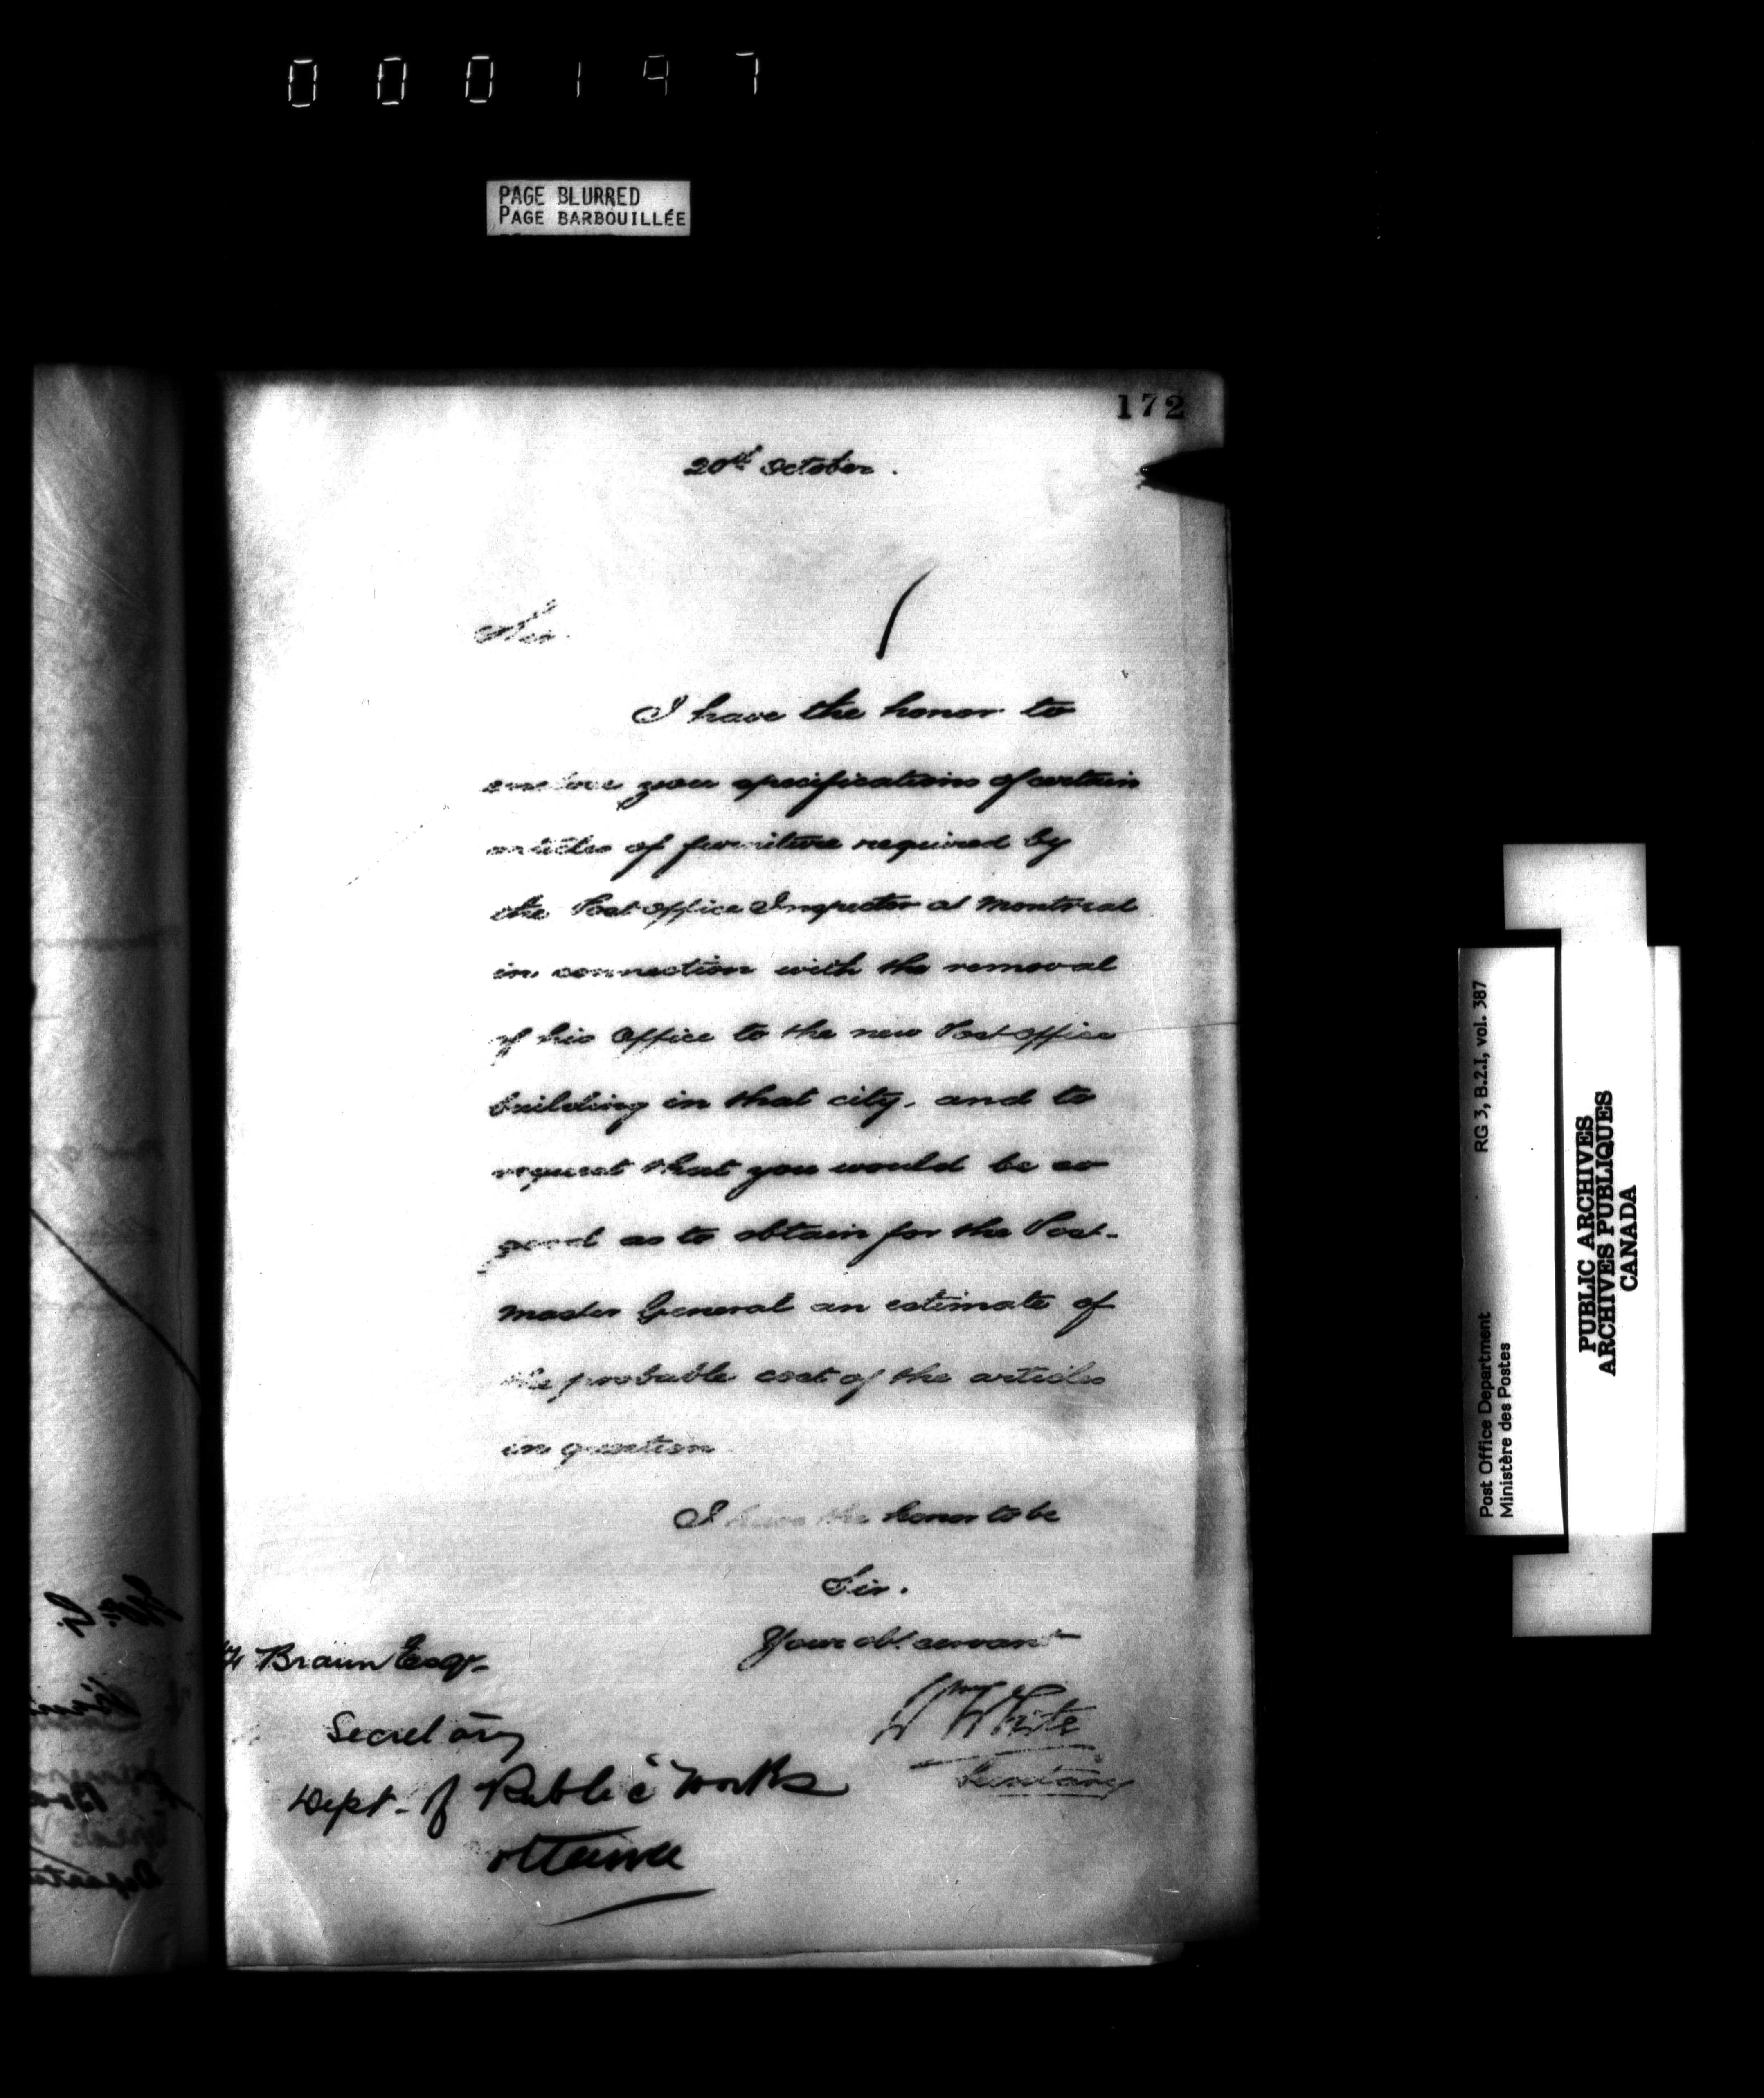 000197
PAGE BLURRED
PAGE BARBOUILLÉE
172
20th October.
Sir.
I have the honor to
enclose you specifications of certain
articles of furniture required by
the Post Office Inspector at Montreal
in connection with the removal
of his Office to the new Post Office
building in that city, and to
request that you would be so
good as to obtain for the Post-
master General an estimate of
the probable cost of the articles
in question
I have the honor to be
Sir.
Your obt servant
Wm White
Secretary
Braun Esqr.
Secretary
Dept. of Public Works
Ottawa
RG 3, B.2.I, vol. 387
Post Office Department
Ministère des Postes
PUBLIC ARCHIVES
ARCHIVES PUBLIQUES
CANADA